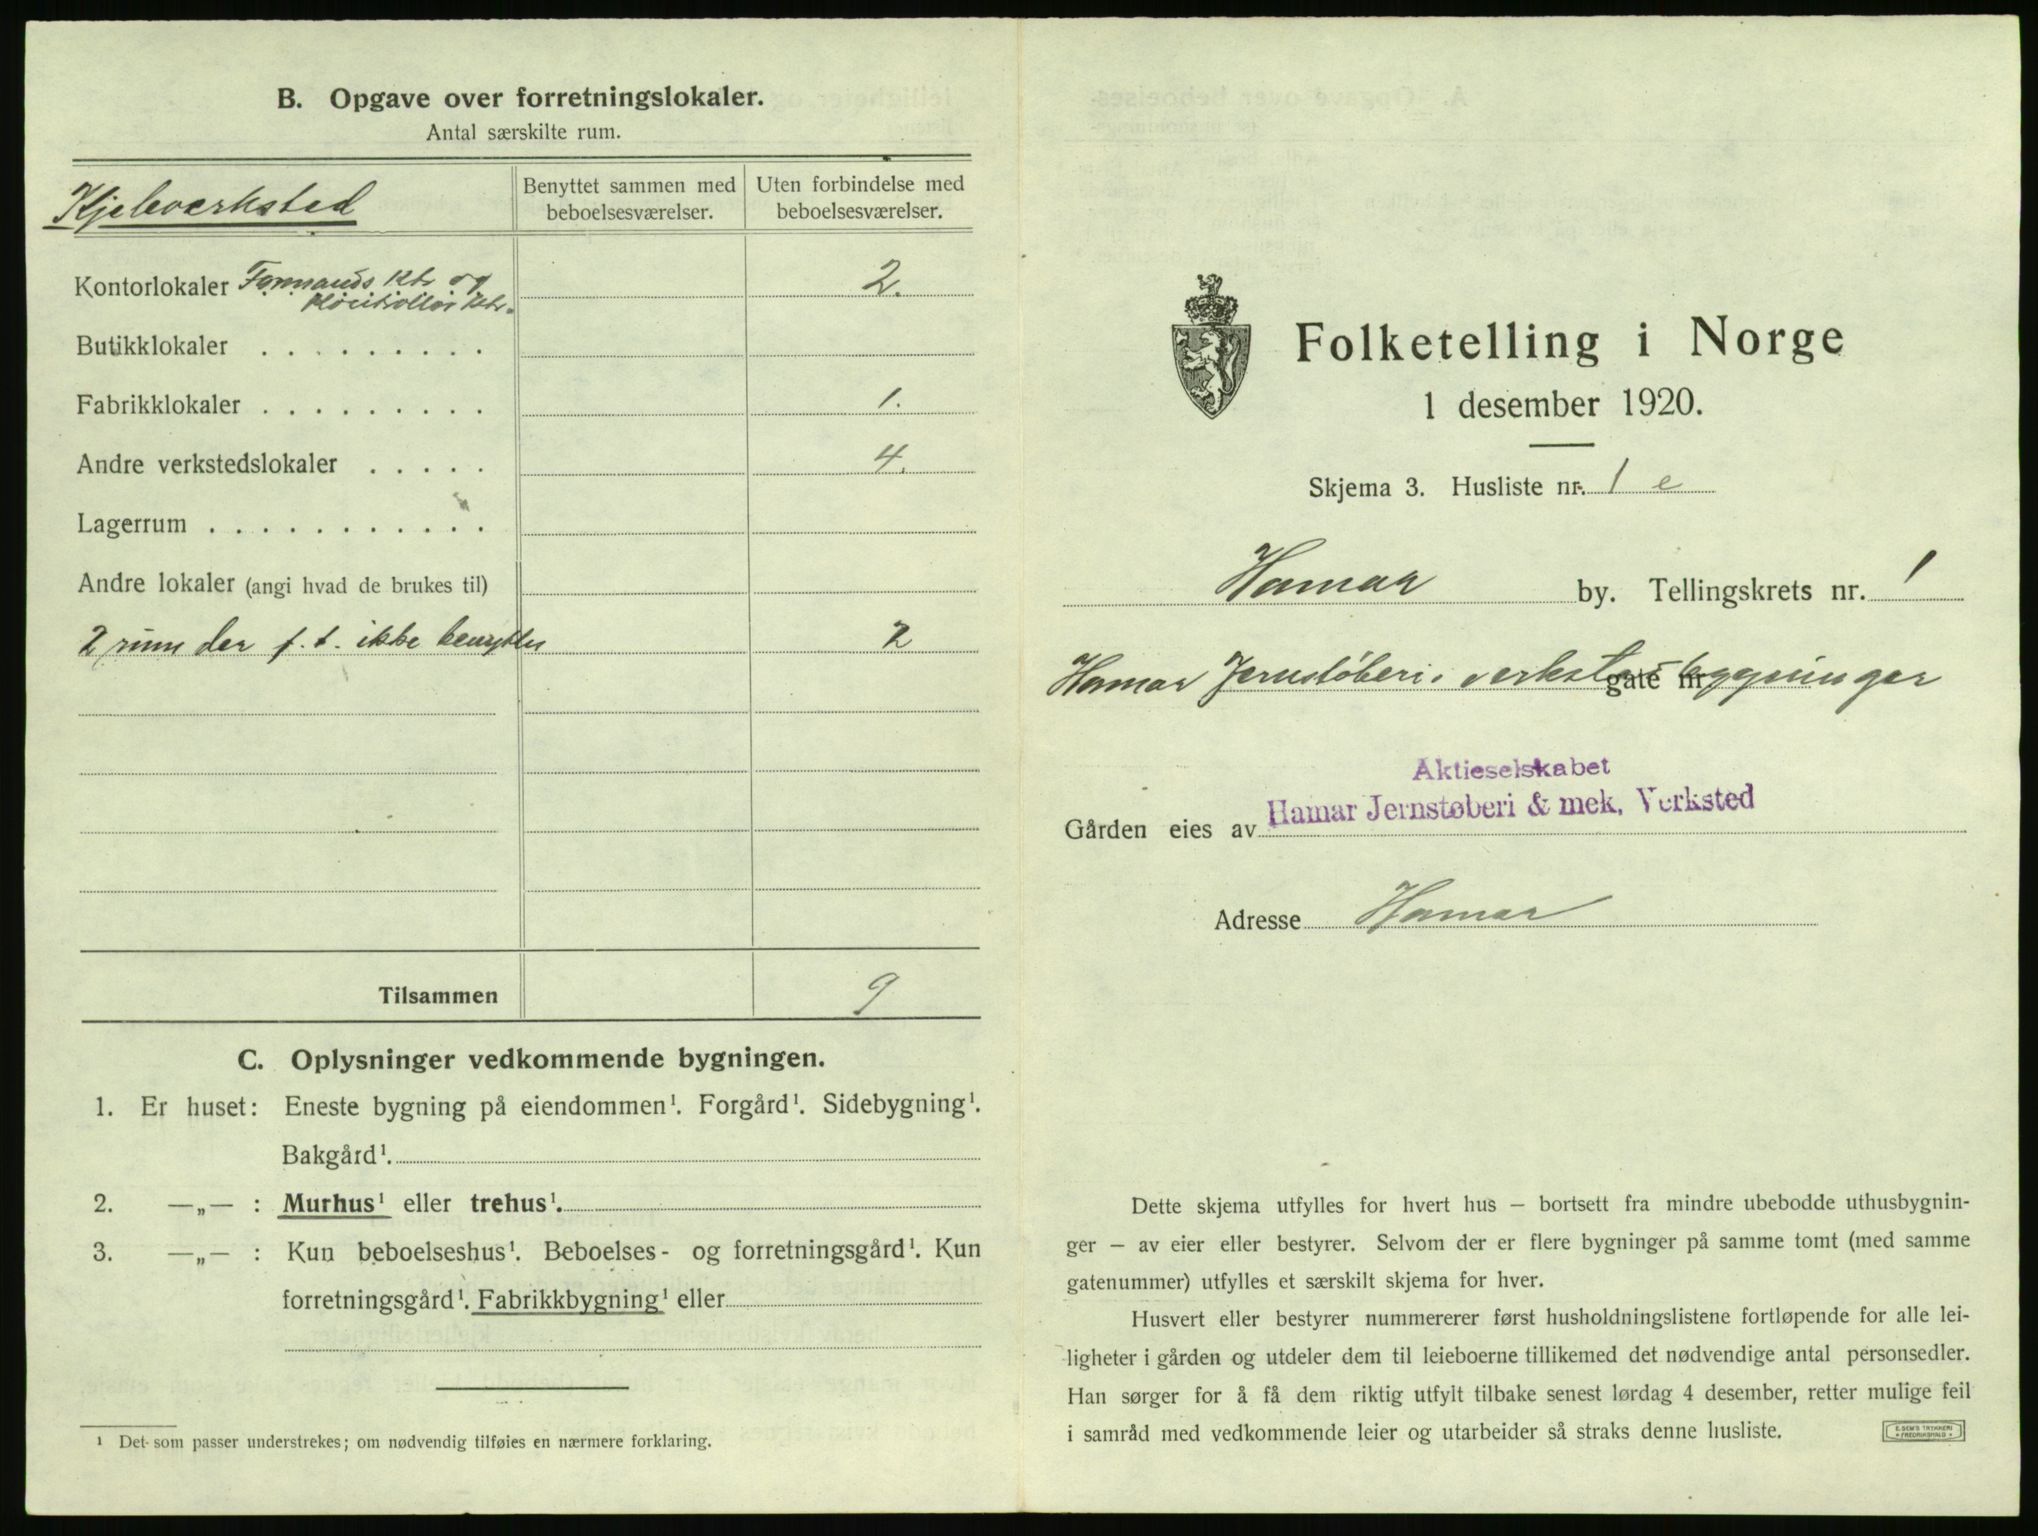 B. Opgave over forretningslokaler.
Antal særskilte rum.
Kjeleverksted
Benyttet sammen med beboelsesværelser.
Uten forbindelse med beboelsesværelser.
Kontorlokaler Formands ktr og 2.
Kontrollør ktr.
Butikklokaler . . . . . . . . .
Fabrikklokaler . . . . . . . . . 1.
Andre verkstedslokaler . . . . . 4.
Lagerrum . . . . . . . . . . .
Andre lokaler (angi hvad de brukes til)
2 rum der f. t. ikke benyttes 2
Tilsammen 9
C. Oplysninger vedkommende bygningen.
1. Er huset: Eneste bygning på eiendommen¹. Forgård¹. Sidebygning¹.
Bakgård¹.
2. —„— : Murhus¹ eller trehus¹.
3. —„— : Kun beboelseshus¹. Beboelses- og forretningsgård¹. Kun
forretningsgård¹. Fabrikkbygning¹ eller
¹ Det som passer understrekes; om nødvendig tilføies en nærmere forklaring.
Folketelling i Norge
1 desember 1920.
Skjema 3. Husliste nr. 1 e
Hamar by. Tellingskrets nr. 1
Hamar Jernstøberi. verksteds bygninger
gate nr
Aktieselskabet
Gården eies av Hamar Jernstøberi & mek. Verksted
Adresse Hamar
Dette skjema utfylles for hvert hus — bortsett fra mindre ubebodde uthusbygnin-
ger — av eier eller bestyrer. Selvom der er flere bygninger på samme tomt (med samme
gatenummer) utfylles et særskilt skjema for hver.
Husvert eller bestyrer nummererer først husholdningslistene fortløpende for alle lei-
ligheter i gården og utdeler dem til leieboerne tillikemed det nødvendige antal personsedler.
Han sørger for å få dem riktig utfylt tilbake senest lørdag 4 desember, retter mulige feil
i samråd med vedkommende leier og utarbeider så straks denne husliste.
E. SEM'S TRYKKERI
FREDRIKSHALD